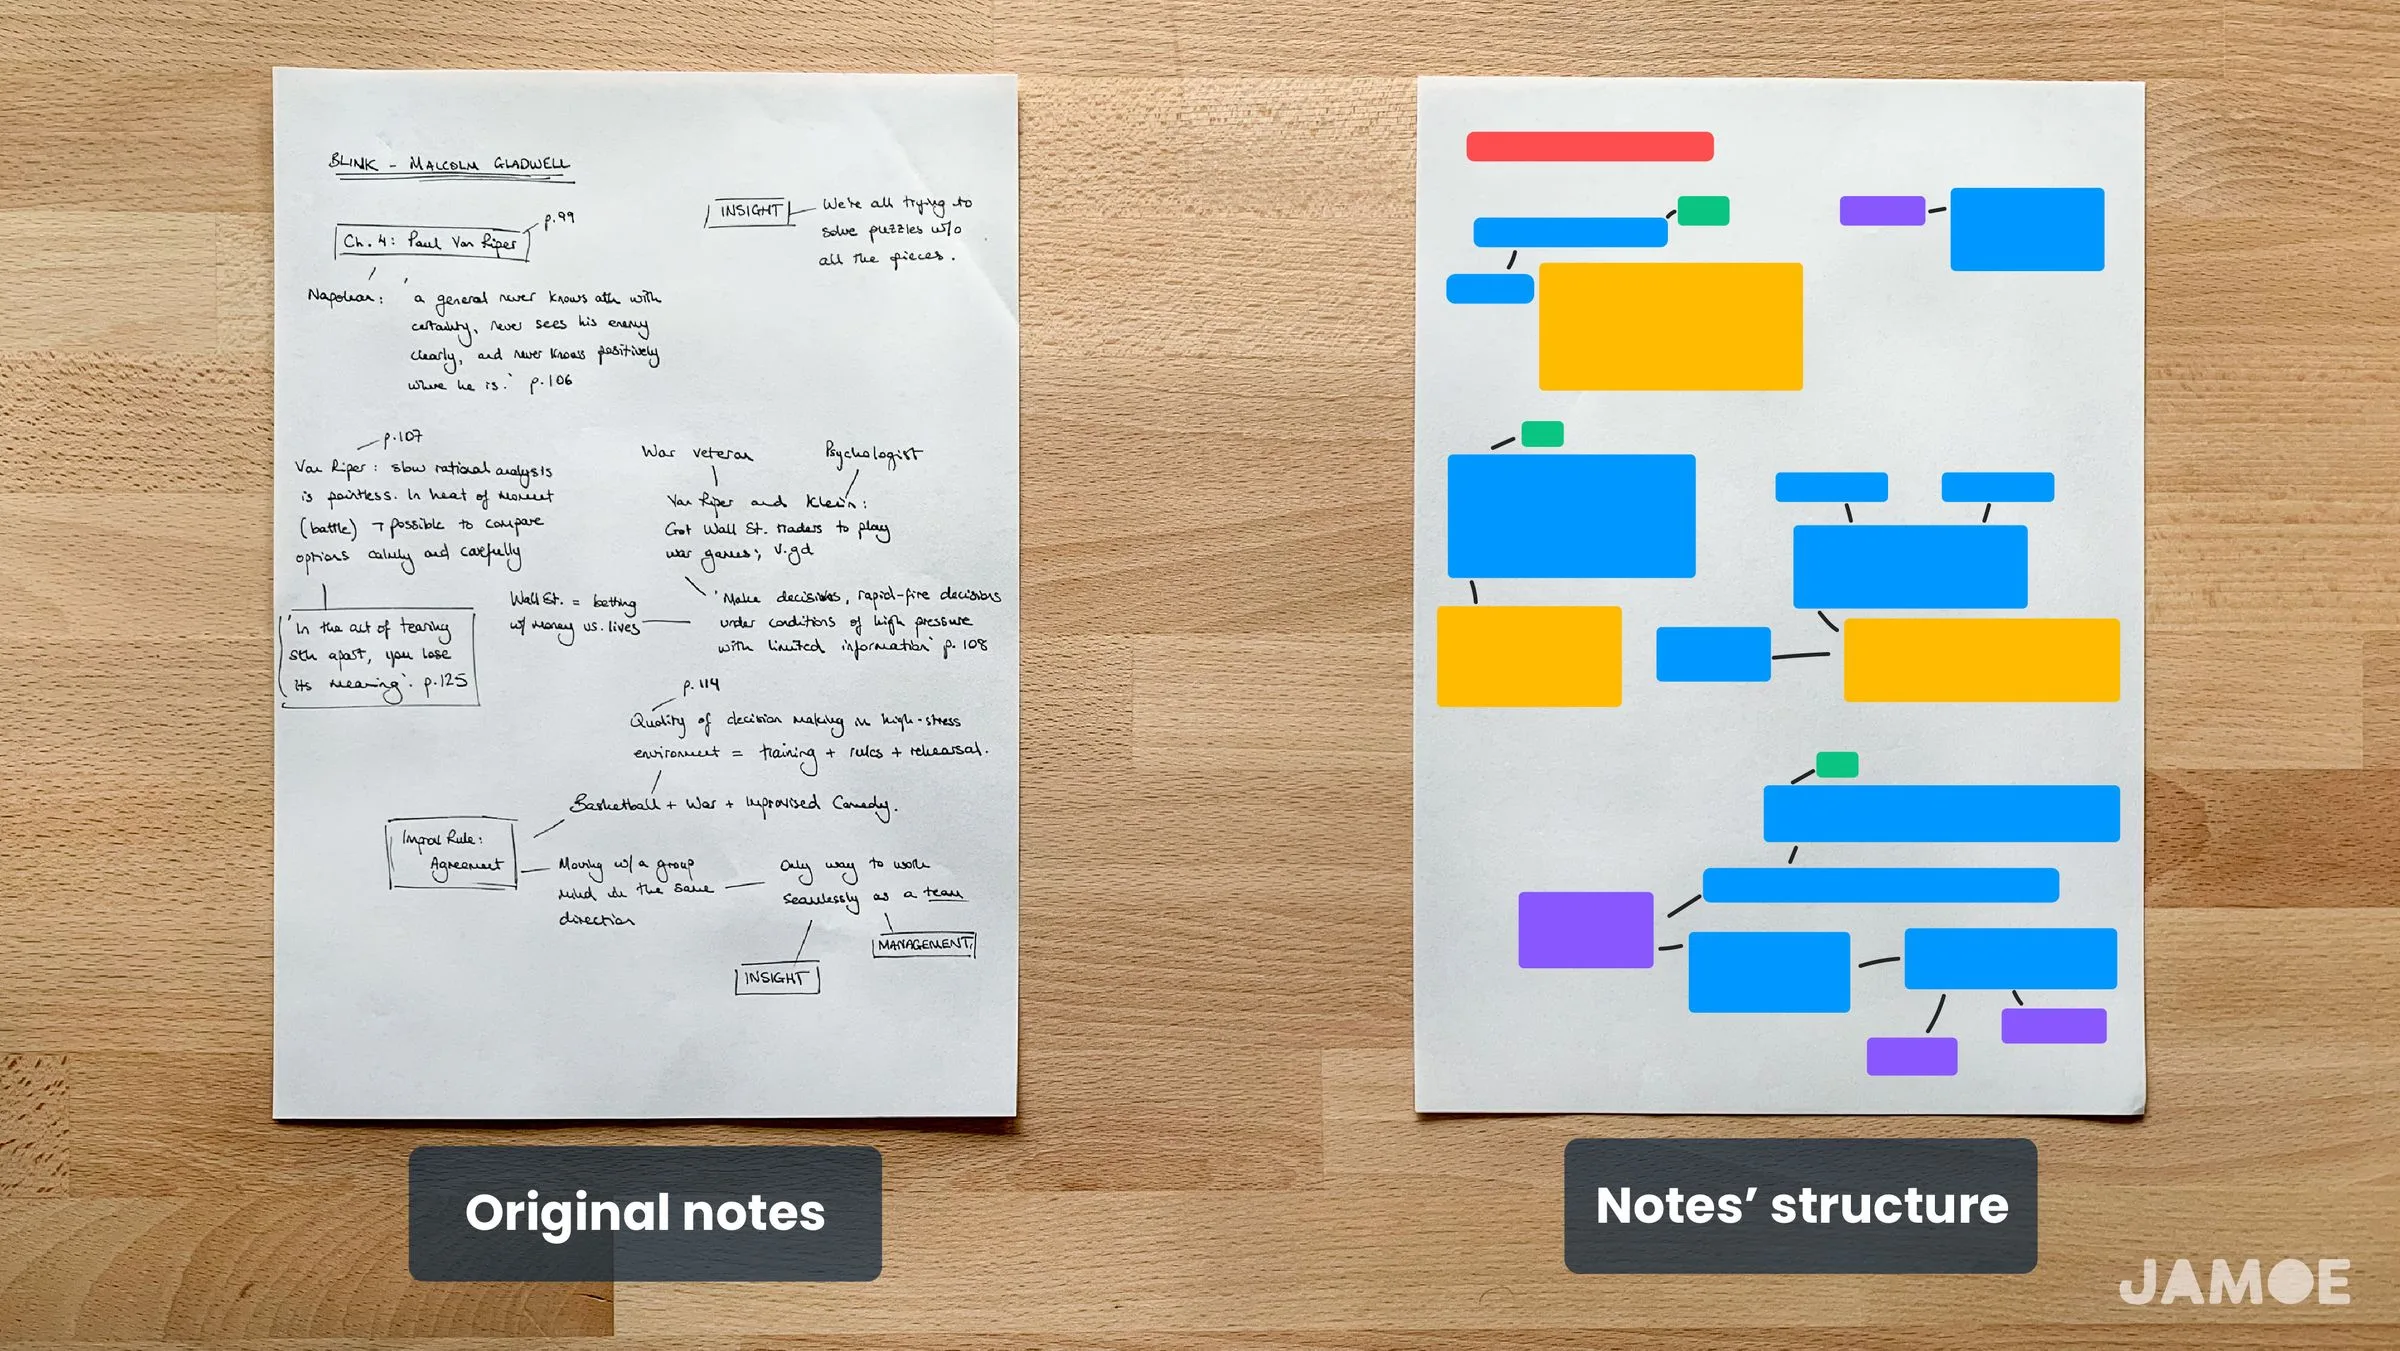 BLINK - MALCOLM GLADWELL
p.99
Ch. 4: Paul Van Riper
INSIGHT
We're all trying to
solve puzzles w/o
all the pieces.
Napolean:
'a general never knows ath with
certainty, never sees his enemy
clearly, and never knows positively
where he is.' p.106
p.107
Van Riper: slow rational analysis
is pointless. In heat of moment
(battle) ¬ possible to compare
options calmly and carefully
'In the act of tearing
sth apart, you lose
its meaning'. p.125
War veteran
Psychologist
Van Riper and Klein:
Got Wall St. traders to play
war games; v.gd
Wall St. = betting
w/ money vs. lives
'Make decisions, rapid-fire decisions
under conditions of high pressure
with limited information' p.108
p.114
Quality of decision making in high-stress
environment = training + rules + rehearsal.
Basketball + War + Improvised Comedy.
Improv Rule:
Agreement
Moving w/ a group
mind in the same
direction
Only way to work
seamlessly as a team
MANAGEMENT
INSIGHT
Original notes
Notes' structure
JAMOE